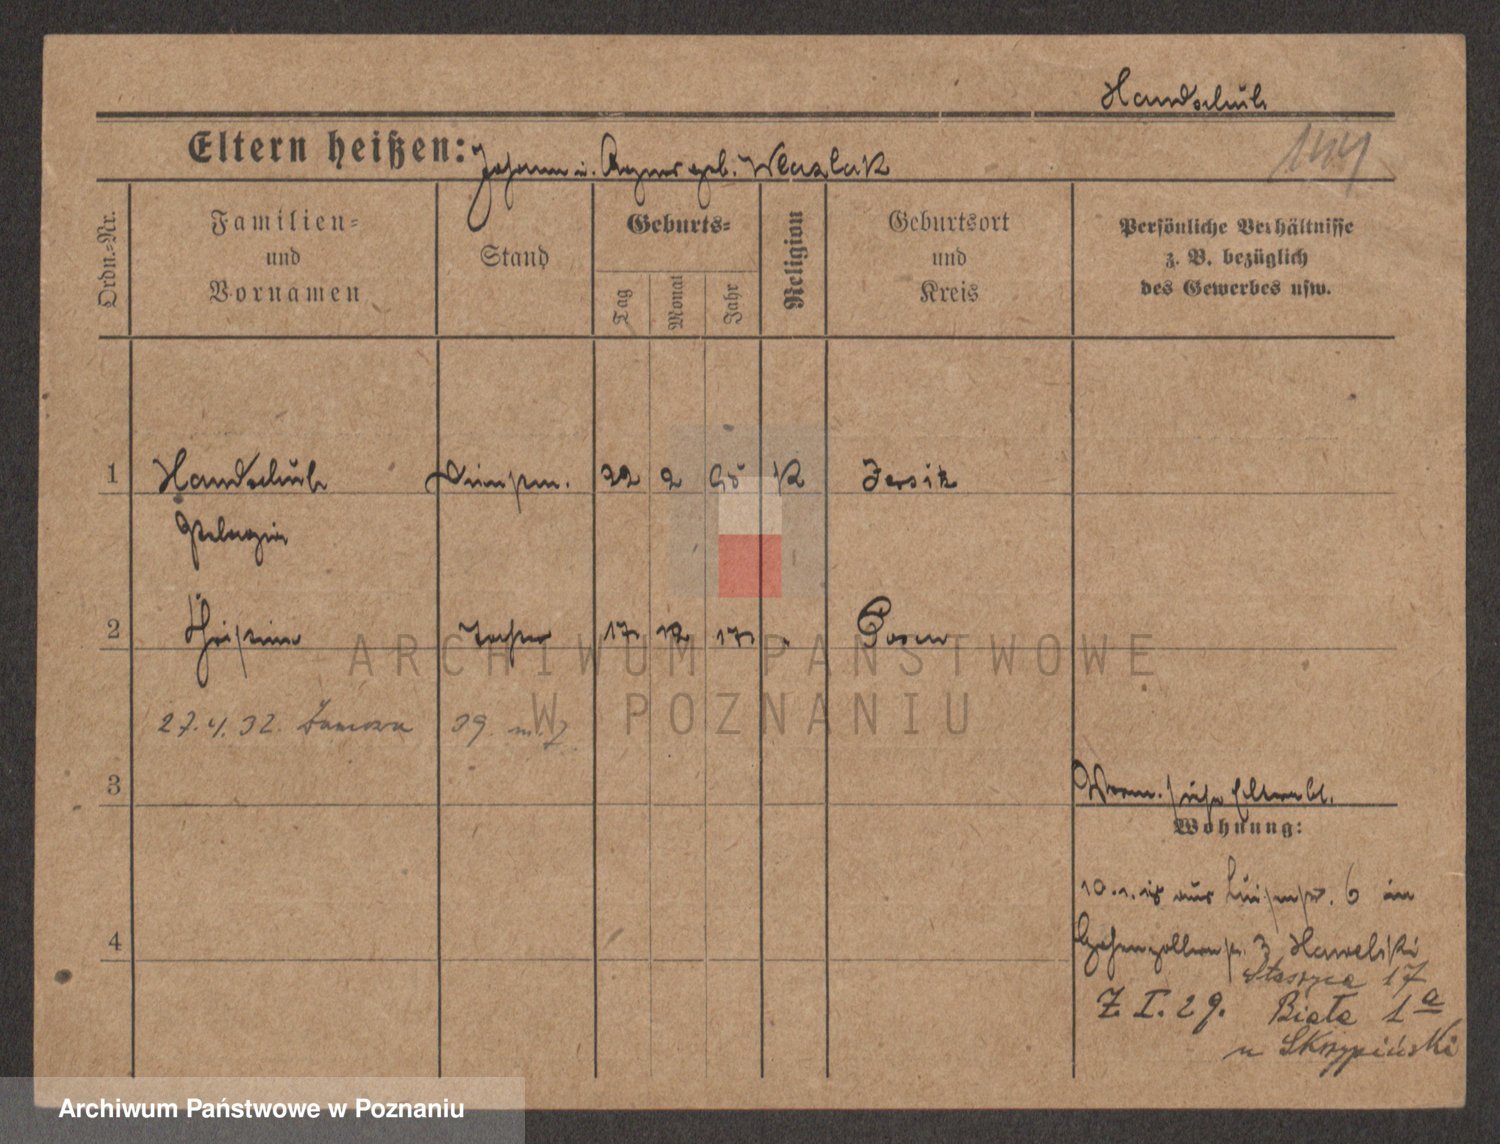 Handschuh
Eltern heißen: Johann u. Agnes geb. Wlazlak
144
Ordn.-Nr.
Familien-
und
Vornamen
Stand
Geburts-
Tag
Monat
Jahr
Religion
Geburtsort
und
Kreis
Persönliche Verhältnisse
z. B. bezüglich
des Gewerbes usw.
1 Handschuh 22 2 K Jersitz
Pelagia
2 Tochter 17 12 17 Posen
27. 4. 32. 39. m. 7
3
Verm. siehe Elternbl.
Wohnung:
10.1.18 aus Luisenstr. 6 in
Hohenzollernstr. 3 Hawelski
4
Staszyca 17
Z. I. 29. Biała 1a
u Skrzypiński
ARCHIWUM PAŃSTWOWE
W POZNANIU
Archiwum Państwowe w Poznaniu